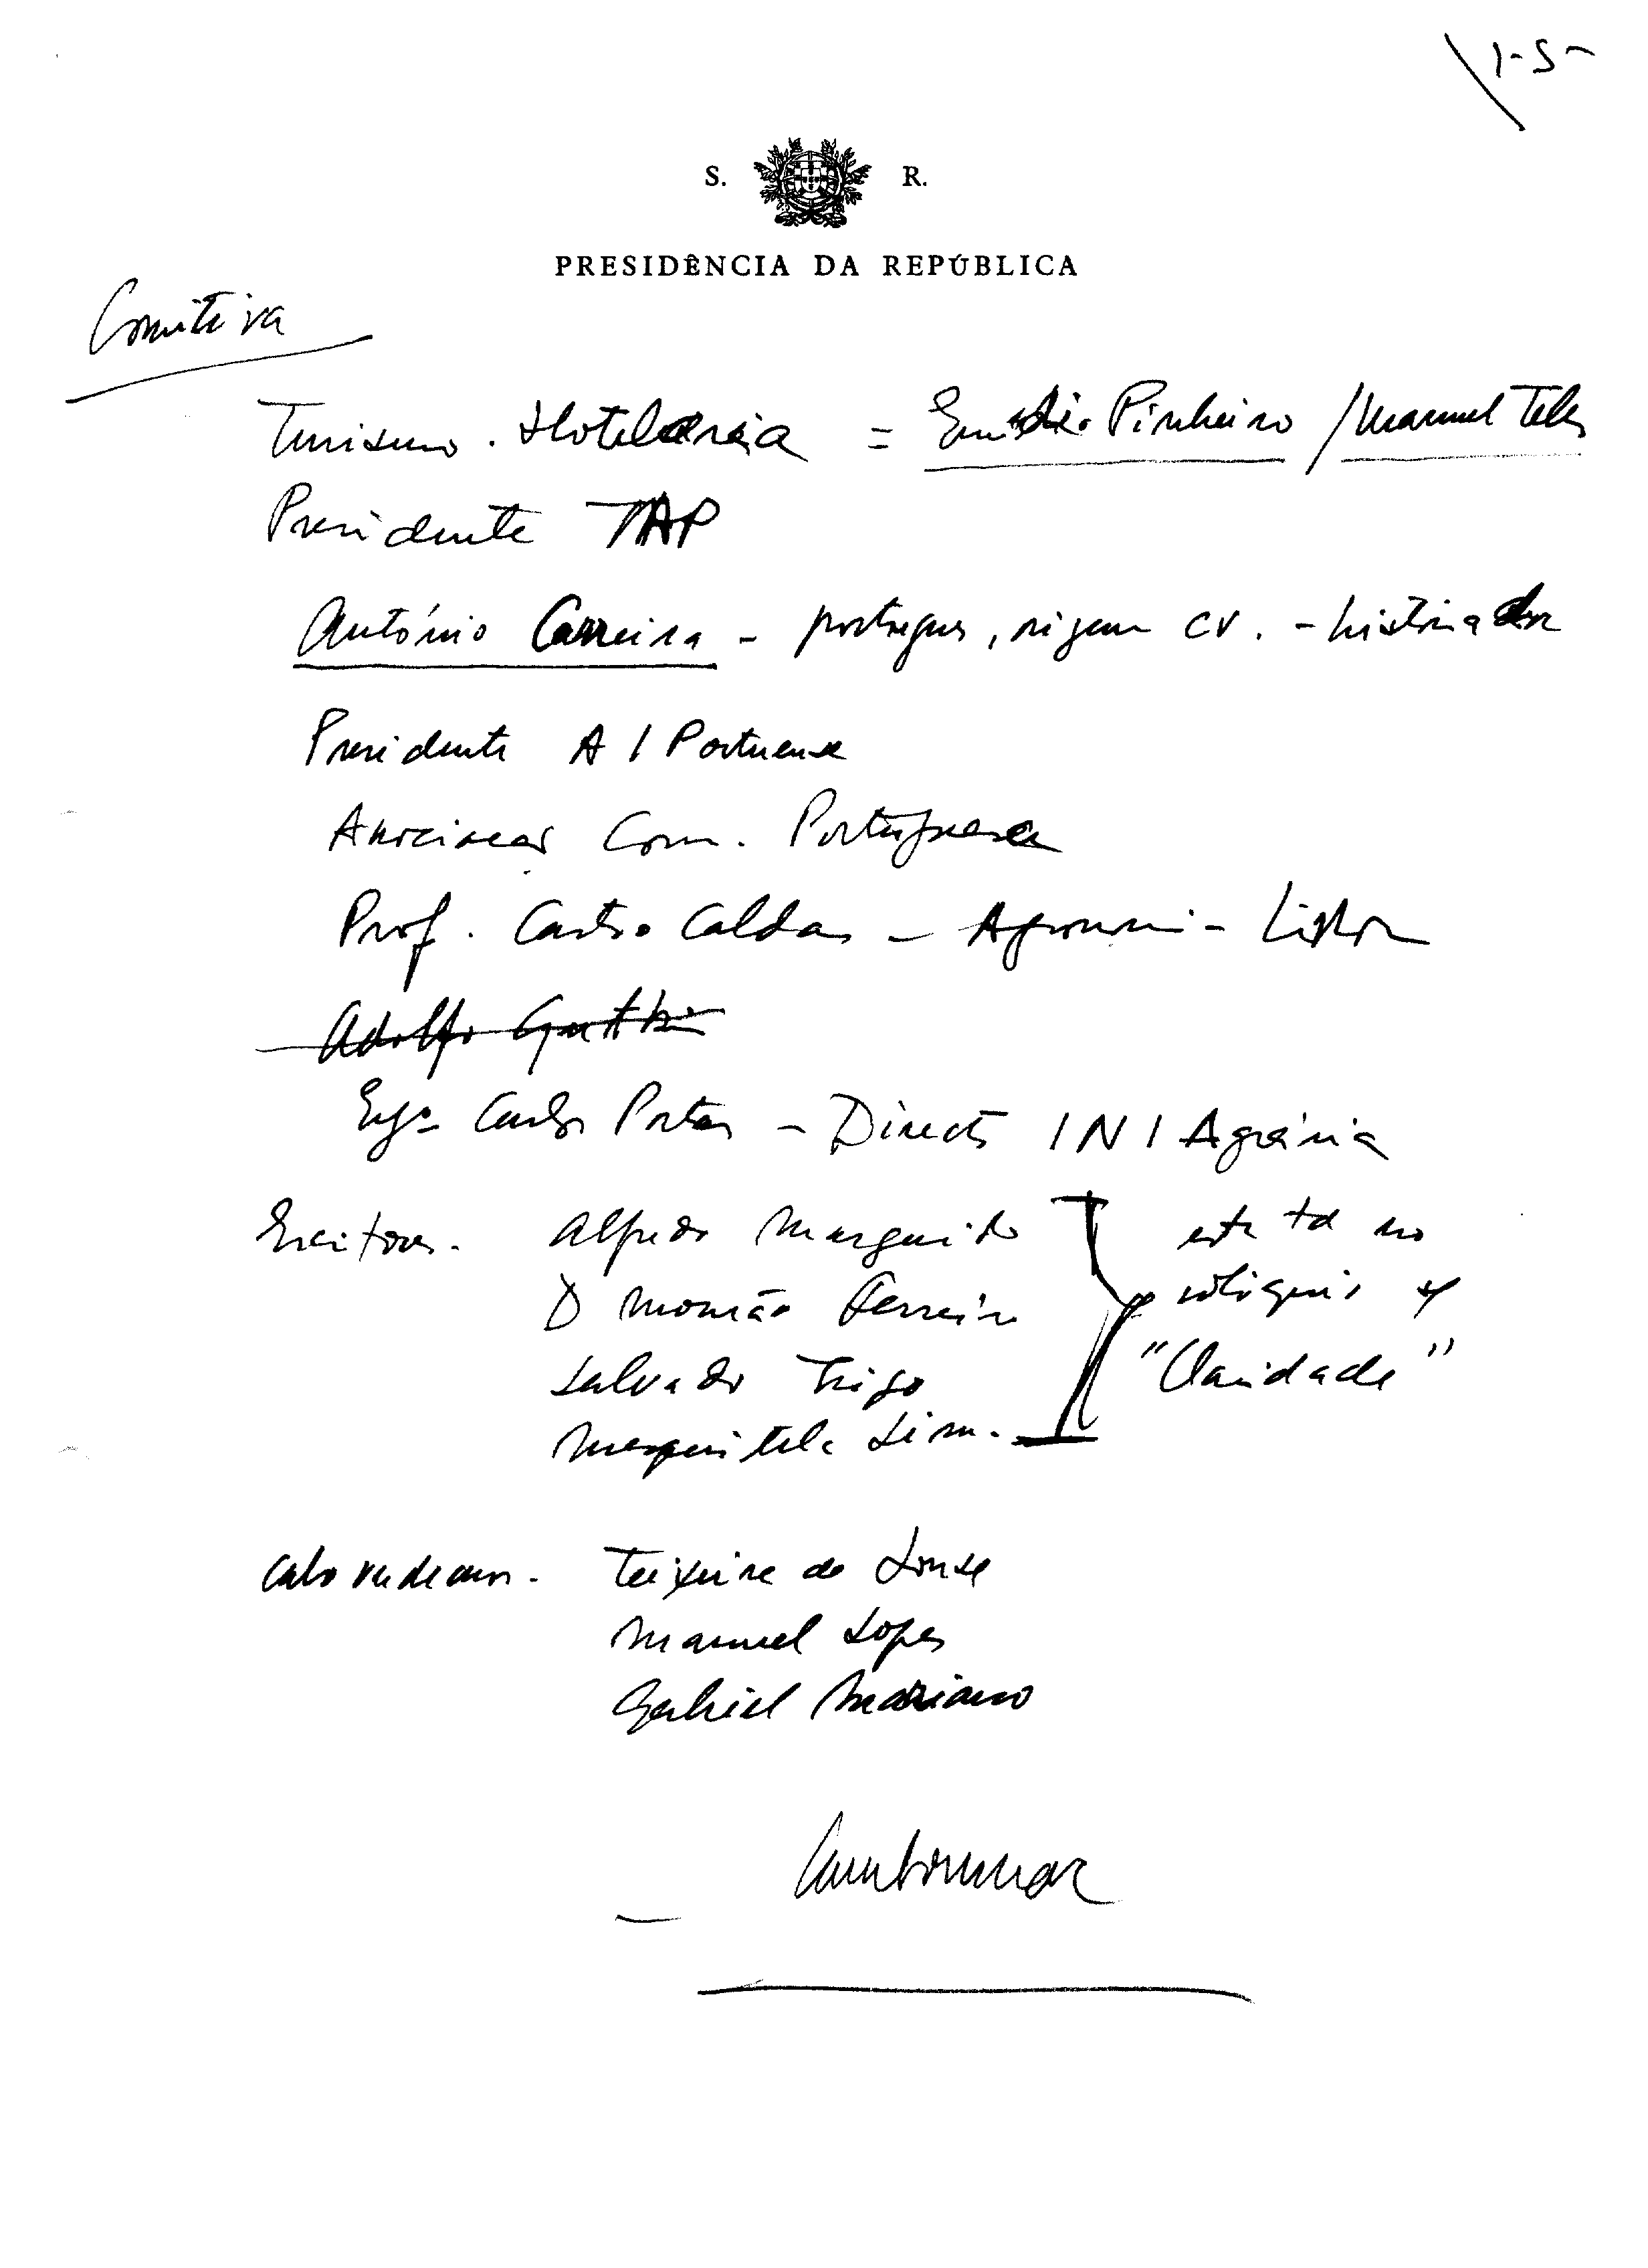 1-5-
S. R.
PRESIDÊNCIA DA REPÚBLICA
Comitiva
Turismo. Hotelaria = Emídio Pinheiro / Manuel Teles
Presidente TAP
António Carreira - portugues, origem CV. - historiador
Presidente A I Portuense
Associacao Com. Portuguesa
Prof. Castro Caldas - Agronomi - Lisboa
Adolfo
Engº Carlos Portas - Director I N I Agrária
Escritores. Alfredo Margarido
D Mourão Ferreira
Salvador Trigo
Mesquitela Lima.
este td no
colóquio
"Claridade"
Cabo verdeanos. Teixeira de Sousa
Manuel Lopes
Gabriel Mariano